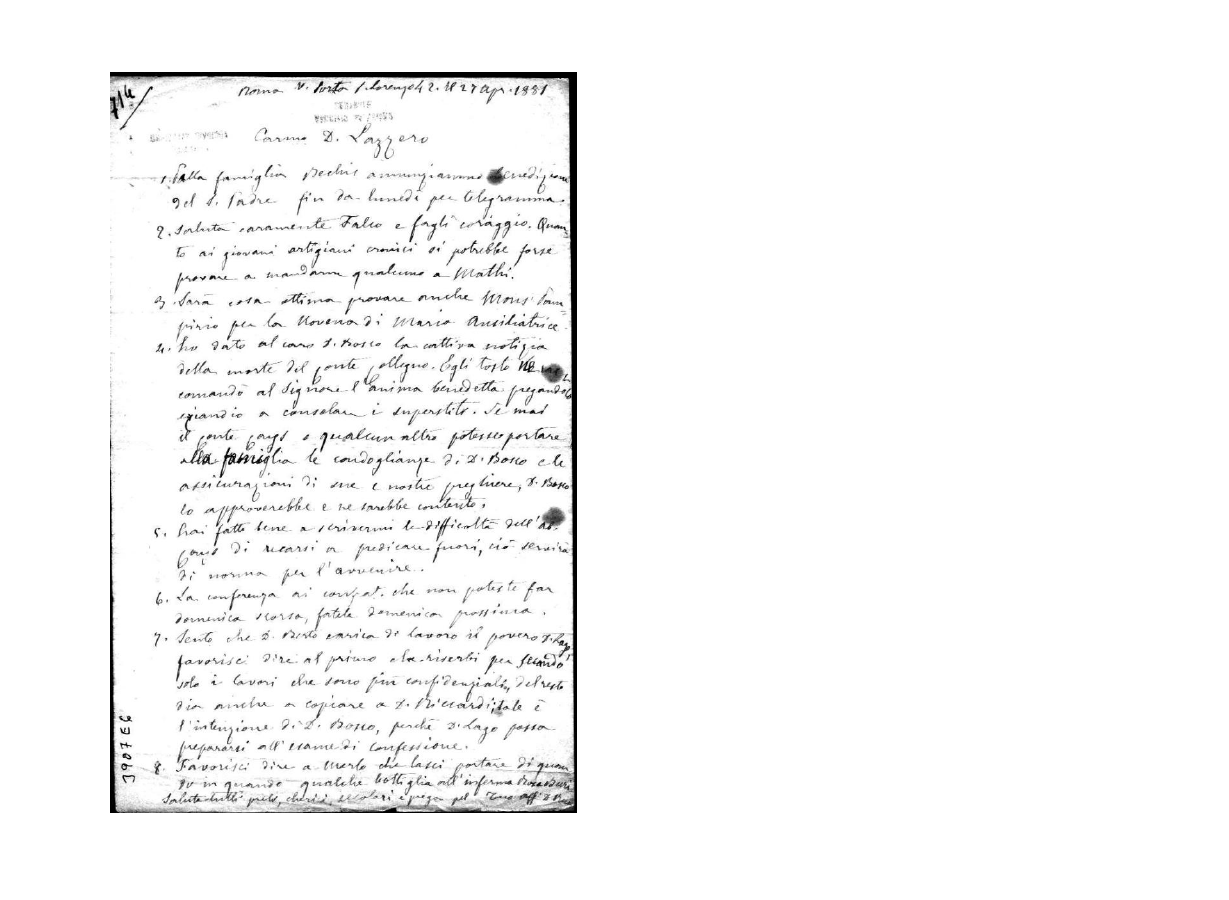 Roma V. Porta S. Lorenzo 42. Il 27 Apr. 1881
Carmo D. Lazzero
1. Alla famiglia Bechis annunziammo benedizione
del S. Padre fin da lunedì per telegramma.
2. Saluta caramente Falco e fagli coraggio. Quan-
to ai giovani artigiani cronici si potrebbe forse
provare a mandarne qualcuno a Mathi.
3. Sarà cosa ottima provare anche Mons.
per la Novena di Maria Ausiliatrice.
4. Ho dato al caro D. Bosco la cattiva notizia
della morte del Conte Collegno. Egli tosto
comandò al Signore l'anima benedetta pregandolo
eziandio a consolare i superstiti. Se mai
il Conte Cays o qualcun altro potesse portare
alla famiglia le condoglianze di D. Bosco e le
assicurazioni di sue e nostre preghiere, D. Bosco
lo approverebbe e ne sarebbe contento.
5. Hai fatto bene a scrivermi le difficoltà dell'
Cays di recarsi a predicare fuori, ciò servirà
di norma per l'avvenire.
6. La conferenza ai che non poteste far
domenica scorsa, fatela domenica prossima.
7. Sento che D. Berto carica di lavoro il povero D. Lago,
favorisci dire al primo che riserbi per secondo
solo i lavori che sono più confidenziali, del resto
dia anche a copiare a D. Riccardi; tale è
l'intenzione di D. Bosco, perchè D. Lago possa
prepararsi all'esame di confessione.
8. Favorisci dire a Merlo che lasci portare di quan-
do in quando qualche bottiglia all'inferma
Saluta tutti preti, cherici, scolari e prega pel Tuo aff.
3907E6